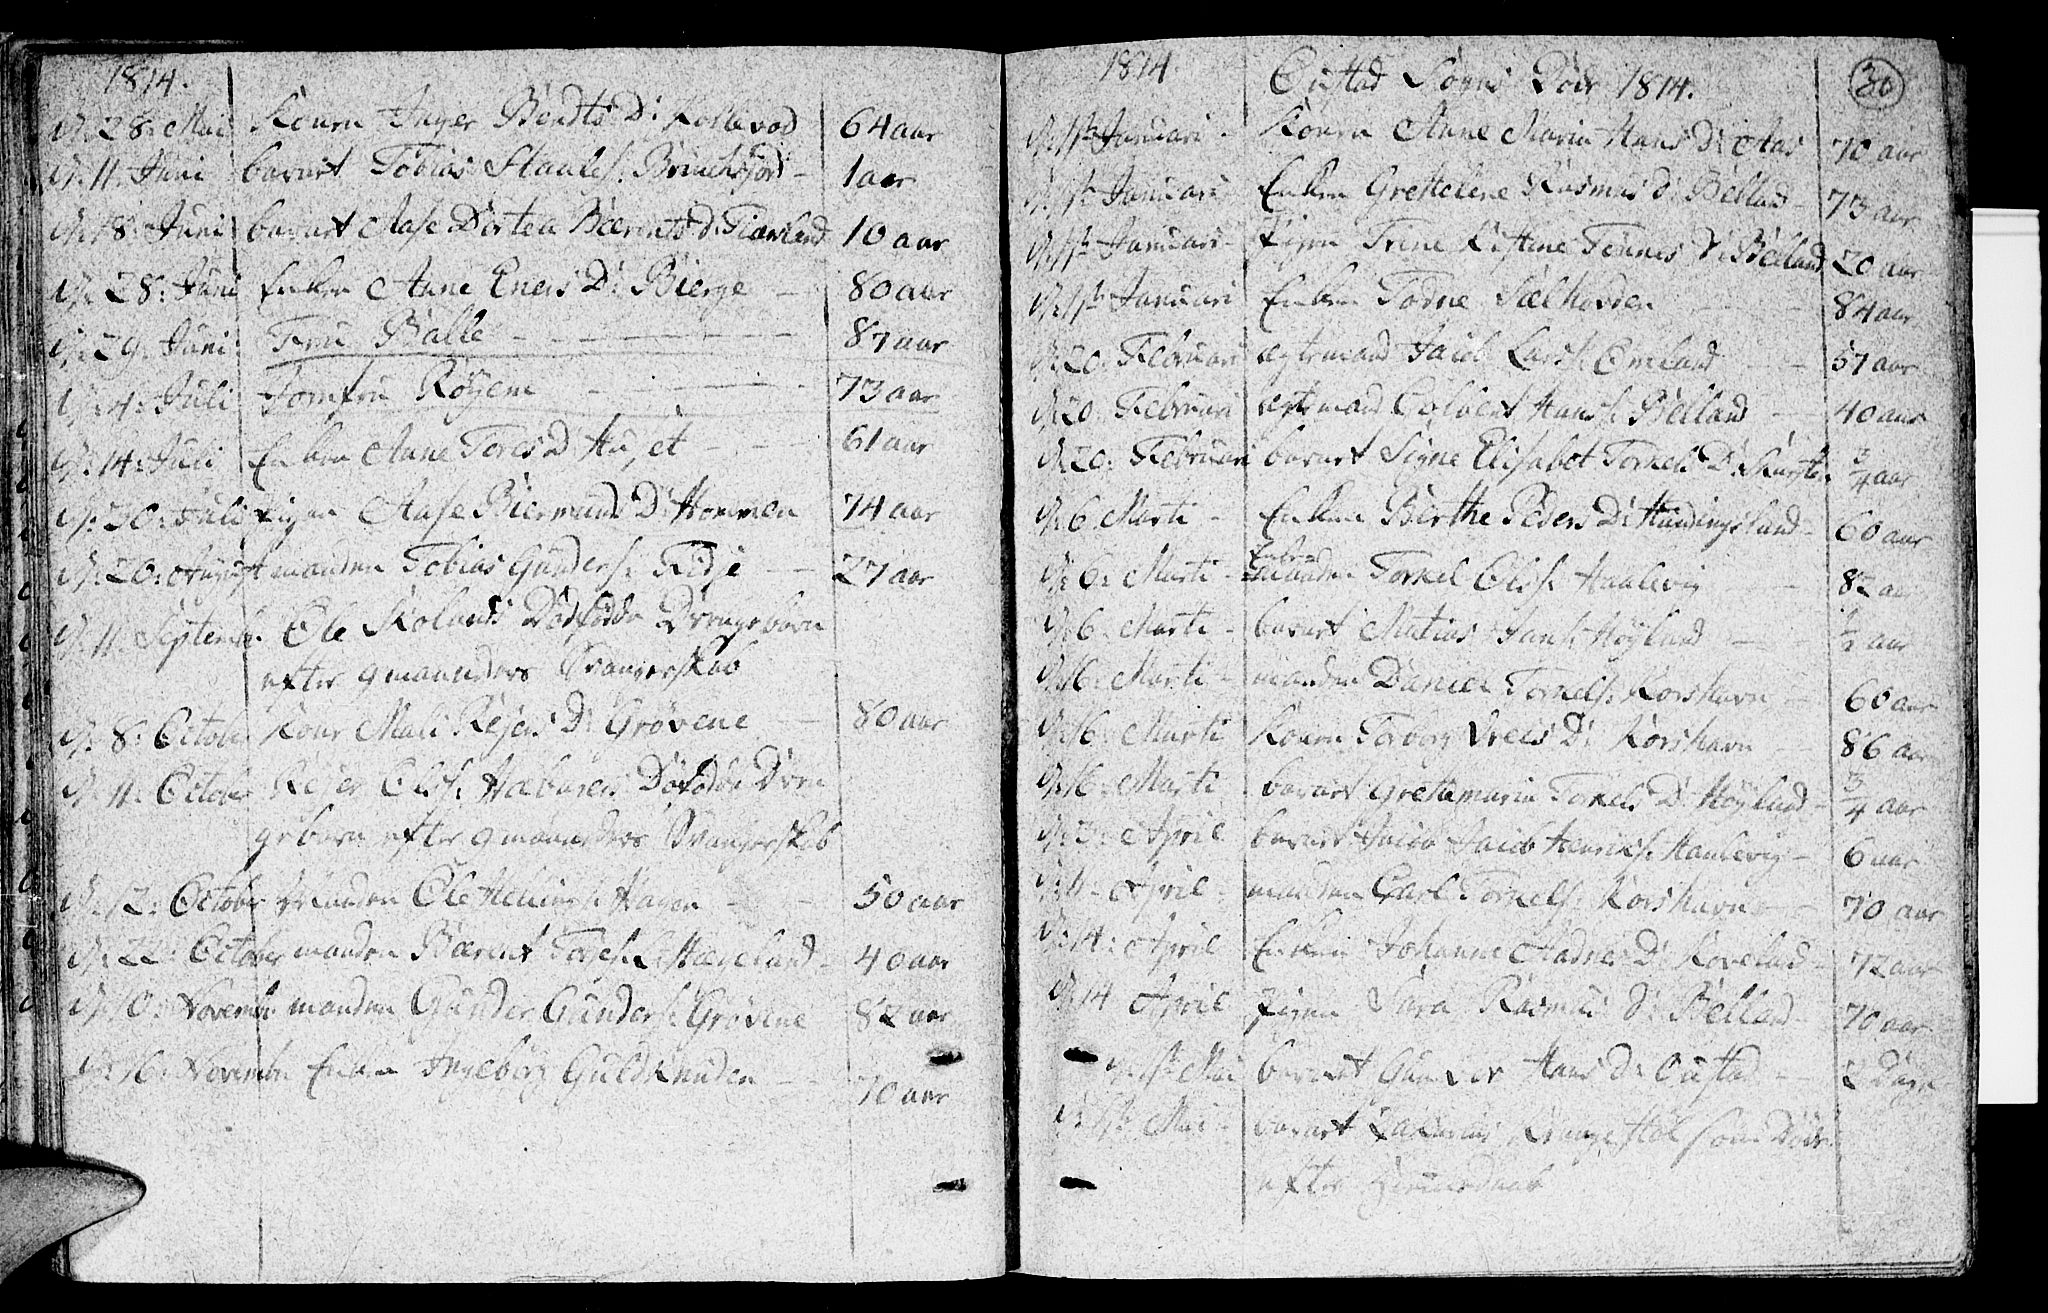 1814.
D: 28: Mai Konen Inger Berdts D: Kollevod 64 aar
D: 11: Juni barnet Tobias Staales: 1 aar
D: 18: Juni barnet Aase Dortea Bærents d: 10 aar
D: 28: Juni Enken Anne Eners D: Bierge 80 aar
D: 29: Juni Fru Balle 87 aar
D: 4: Juli Jomfru Röyem 73 aar
D: 14: Juli Enken Anne Tores D 61 aar
D: 30: Juli Pigen Aase Biermunds D: Hommen 74 aar
D: 20: August manden Tobias Gunders: Fidje 27 aar
D: 11 Septemb. Ole Skolands Dödfödde Drengebarn
efter 9 maanders Svangerskab
D: 8: October Kone Mali Rejers D: Grövene 80 aar
D: 11: October Rejer Olis: Dödfödde Dren
gebarn efter 9 maanders Svangerskab
D: 12: October Manden Ole Hellings: Haven 50 aar
D: 22: October manden Bærent Tores: 40 aar
D: 10: Novemb. manden Gunder Gunders: Grövene 82 aar
D: 16: Novemb. Enken Ingeborg Guldknuden 70 aar
1814 30
Söens Döde 1814.
D: 1ste Januari Konen Anne Maria Hans D: Aas 70 aar
D: 1ste Januari Enken Grethelene Rasmus d: Belland 73 aar
D: 1ste Januari Pigen Trine Kistine Tönnes D: Belland 20 aar
D: 1ste Januari Enken Todne 84 aar
D: 20: Februari egtemand Jacob Lars: 57 aar
D: 20: Februari egtemand Colbens Hans: Belland 40 aar
D: 20: Februari barnet Signe Elisabet Torkels D: 3/4 aar
D: 6 Marti Enken Birthe Peders D: 60 aar
D: 6: Marti Enke
manden Torkel Ols: Haalevig 82 aar
D: 6: Marti barnet Matias Hans: Höyland 1/2 aar
D: 16: Marti manden Daniel Torkels: Korshavn 60 aar
D: 16: Marti Konen Torborg D: Korshavn 86 aar
D: 16: Marti barnet Grethemaria Torkels D: Höyland 3/4 aar
D: 3: April barnet Jacob Jacob Henriks: Haalevig 6 aar
D: 11 April manden Carl Torkels: Korshavn 70 aar
D: 14: April Enken Johanne Aadnes D: Roveland 72 aar
D: 14 April Pigen Sara Rasmus D: Belland 70 aar
D: 1ste Mai barnet Gunder Hans D: 2 Dage
D: 1ste Mai barnet som Döde
efter